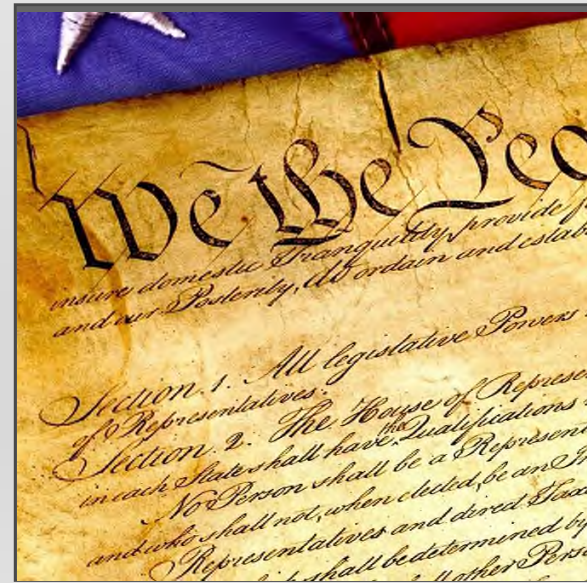 We the Peo
insure domestic Tranquility, provide f
and our Posterity, do ordain and estab
Section. 1. All legislative Powers
of Representatives.
Section. 2. The House of Represe
in each State shall have the Qualifications
No Person shall be a Represent
and who shall not, when elected, be an
Representatives and direct Taxe
shall be determined by
other Perso